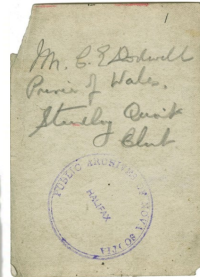 Mr. C. E. Dodwell
Prince of Wales,
Studley Quoit
Club.
PUBLIC ARCHIVES OF NOVA SCOTIA
HALIFAX